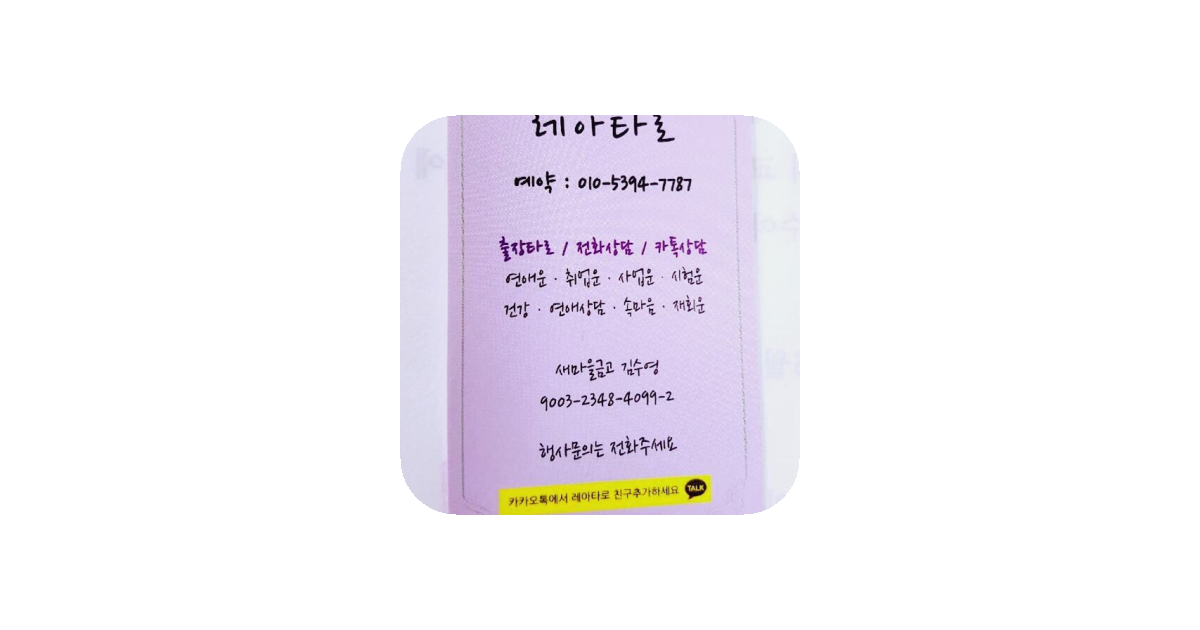 레아타로
예약 : 010-5394-7787
출장타로 / 전화상담 / 카톡상담
연애운 · 취업운 · 사업운 · 시험운
건강 · 연애상담 · 속마음 · 재회운
새마을금고 김수영
9003-2348-4099-2
행사문의는 전화주세요
카카오톡에서 레아타로 친구추가하세요 TALK